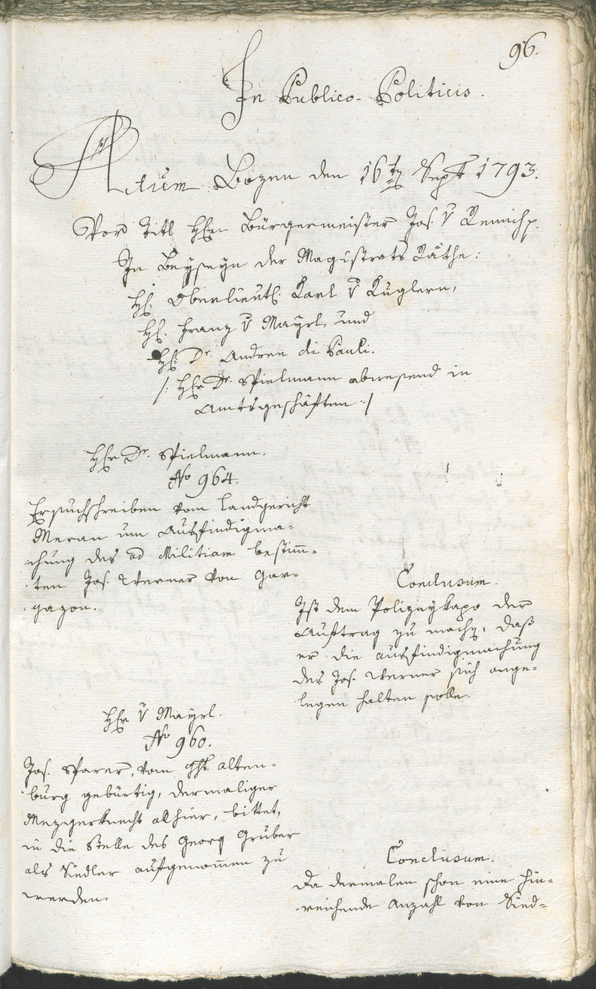 96.
In Publico-Politicis.
Actum Bozen den 16ten Sept 1793.
Vor Titl Herrn Bürgermeister Jos. v
In Beyseyn der Magistrats Räthe:
H. Oberlieut. Karl v Kuglern,
H. Franz v Mayrl, und
H. Dr. Andree di Pauli.
/: Hr Dr. Spielmann abwesend in
Amtsgeschäften :/
Hr Dr. Spielmann.
No 964.
Ersuchschreiben vom Landgericht
Meran um Ausfindigma-
chung des ad Militiam bestimm-
ten Jos. Werner von Gar-
gazon.
Conclusum.
Ist dem Polizeykapo der
Auftrag zu machen, daß
er die Ausfindigmachung
des Jos. Werner sich ange-
legen halten solle.
Hr v Mayrl.
No 960.
Jos. Sparer, vom Ght Alten-
burg gebürtig, dermaliger
Mezgerknecht alhier, bittet,
in die Stelle des Georg Gruber
als Siedler aufgenommen zu
werden.
Conclusum.
Da dermalen schon eine hin-
reichende Anzahl von Sied-